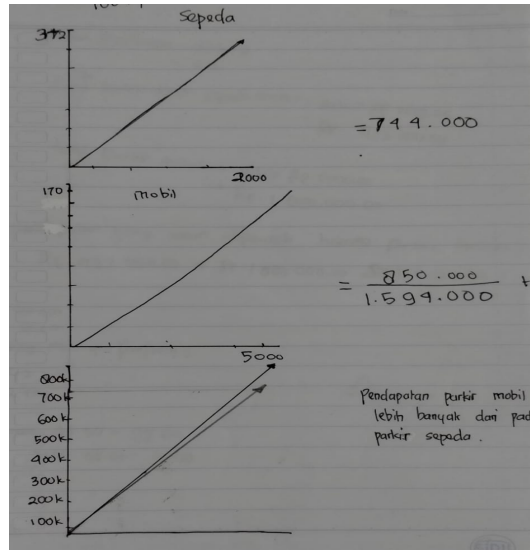 Sepeda
372
= 744.000
2000
170
mobil
= 850.000
1.594.000 +
5000
800k
700k
600k
500k
400k
300k
200k
100k
Pendapatan parkir mobil
lebih banyak dari pad
parkir sepeda.